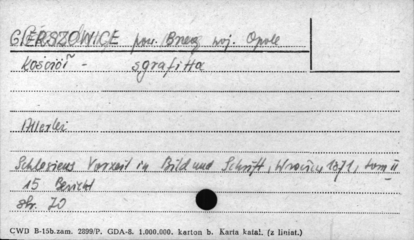 GIERSZOWICE pow. Brzeg woj. Opole
Kościół - sgrafitta
Allerlei
Schlesiens Vorzeit in Bild und Schrift, Wrocław 1871, tom II
15 Bericht
str. 70
CWD B-15b.zam. 2899/P. GDA-8. 1.000.000. karton b. Karta katal. (z liniat.)